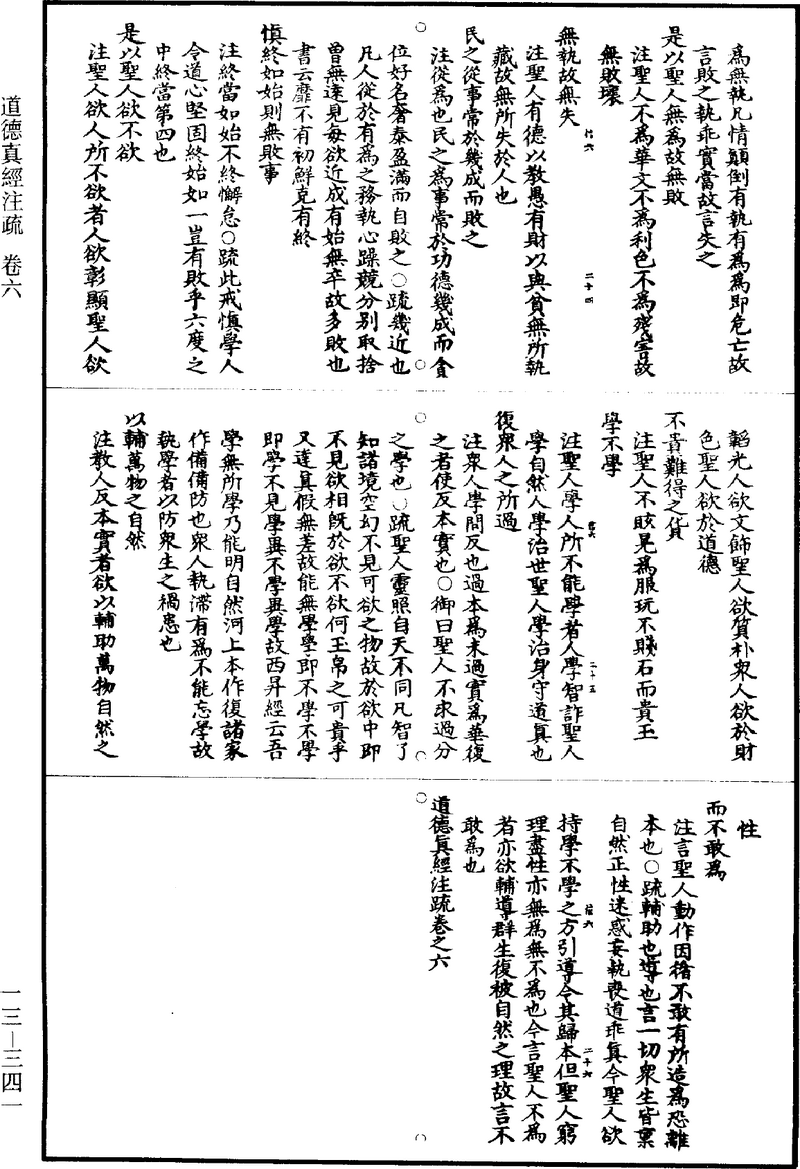 爲無執凡情顛倒有執有爲爲即危亡故
言敗之執乖實當故言失之
是以聖人無爲故無敗
注聖人不爲華文不爲利色不爲殘害故
無敗壞
無執故無失
注聖人有德以教愚有財以與貧無所執
藏故無所失於人也
民之從事常於幾成而敗之
注從爲也民之爲事常於功德幾成而貪
位好名奢泰盈滿而自敗之○疏幾近也
凡人從於有爲之務執心躁競分別取捨
曾無遠見每欲近成有始無卒故多敗也
書云靡不有初鮮克有終
慎終如始則無敗事
注終當如始不終懈怠○疏此戒慎學人
令道心堅固終始如一豈有敗乎六度之
中終當第四也
是以聖人欲不欲
注聖人欲人所不欲者人欲彰顯聖人欲
韜光人欲文飾聖人欲質朴衆人欲於財
色聖人欲於道德
不貴難得之貨
注聖人不眩晃爲服玩不賤石而貴玉
學不學
注聖人學人所不能學者人學智詐聖人
學自然人學治世聖人學治身守道真也
復衆人之所過
注衆人學問反也過本爲末過實爲華復
之者使反本實也○御曰聖人不求過分
之學也○疏聖人靈照自天不同凡智了
知諸境空幻不見可欲之物故於欲中即
不見欲相既於欲不欲何玉帛之可貴乎
又達真假無差故能無學學即不學不學
即學不見學異不學異學故西昇經云吾
學無所學乃能明自然河上本作復諸家
作備備防也衆人執滯有爲不能忘學故
執學者以防衆生之禍患也
以輔萬物之自然
注教人反本實者欲以輔助萬物自然之
性
而不敢爲
注言聖人動作因循不敢有所造爲恐離
本也○疏輔助也導也言一切衆生皆稟
自然正性迷惑妄執喪道乖真今聖人欲
持學不學之方引導令其歸本但聖人窮
理盡性亦無爲無不爲也今言聖人不爲
者亦欲輔導群生復被自然之理故言不
敢爲也
道德真經注疏卷之六
道德真經注疏 卷六
一三—三四一